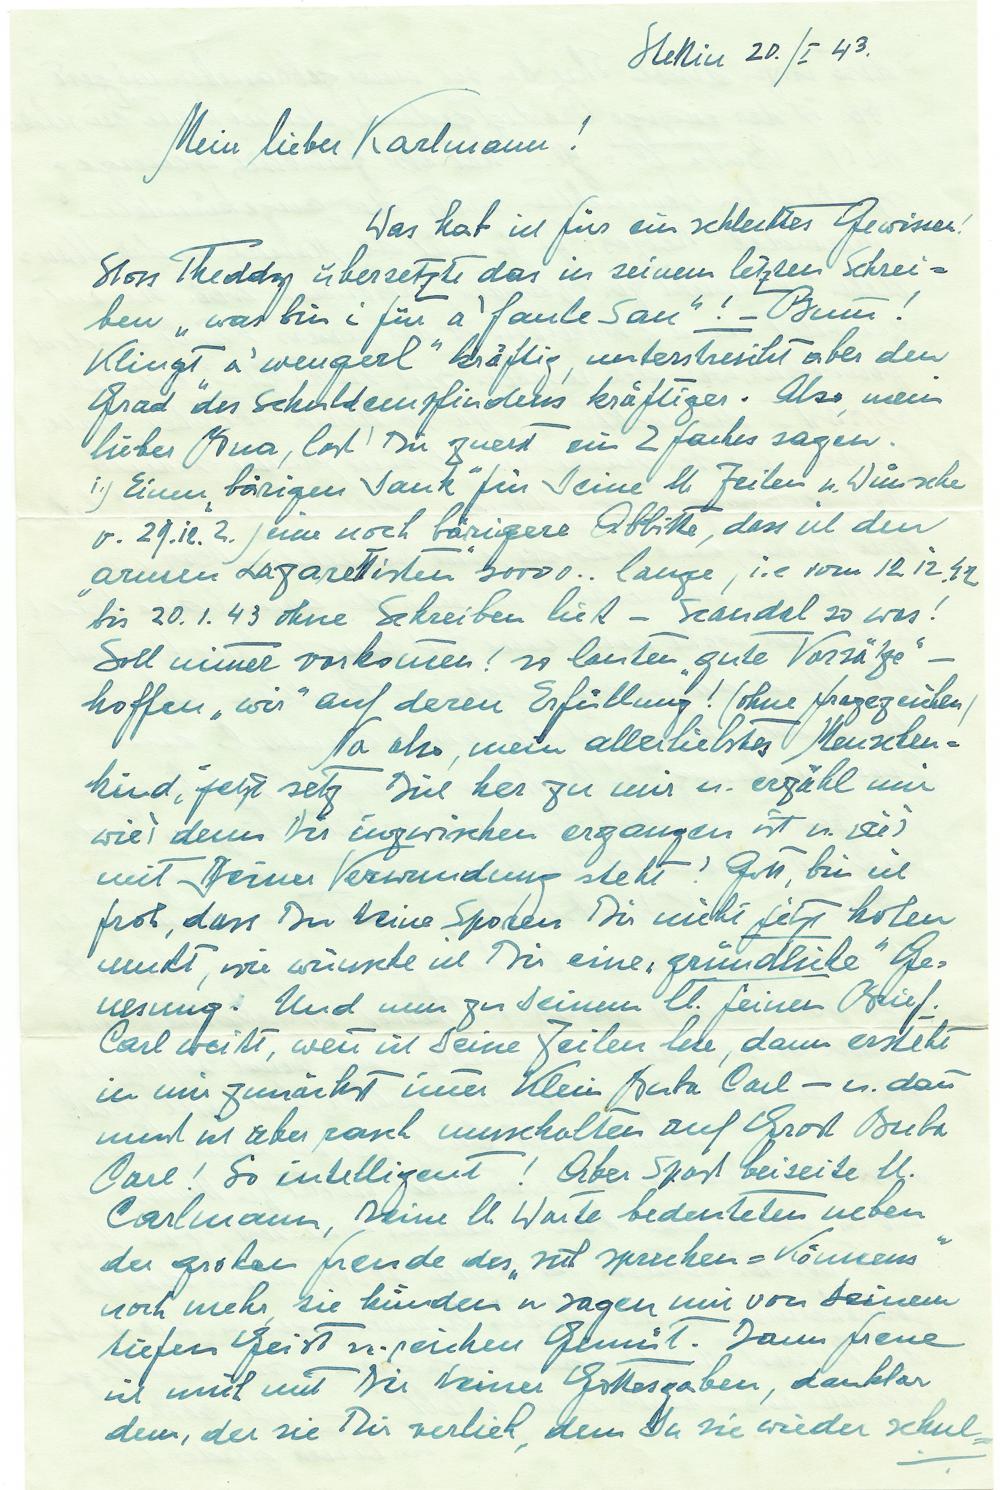 Stettin 20./I 43.
Mein lieber Karlmann!
Was hab ich für ein schlechtes Gewissen!
Theddy übersetzte das in seinem letzten Schrei=
ben „was bin i für a' faule Sau“! – Bum!
Klingt a' wengerl“ kräftig, unterstreicht aber den
Grad des Schuldempfindens kräftiger. Also, mein
lieber Bua, laß' Dir zuerst ein 2 faches sagen.
1.) Einen „bärigen Dank“ für Deine lb. Zeilen u. Wünsche
v. 29.12. 2.) eine noch bärigere Abbitte, dass ich den
„armen Lazarettisten“ soooo.. lange, i.e vom 12.12.42
bis 20.1.43 ohne Schreiben ließ – Scandal so was!
Soll nimmer vorkommen! so lauten „gute Vorsätze“ –
hoffen „wir“ auf deren Erfüllung! (ohne Fragezeichen)
Na also, mein allerliebstes Menschen=
kind, jetzt setz Dich her zu mir u. erzähl mir
wie's denn Dir inzwischen ergangen ist u. wie's
mit Deiner Verwundung steht! Gott, bin ich
froh, dass Du Deine Sporen Dir nicht jetzt holen
mußt, wie wünsche ich Dir eine „gründliche“ Ge=
nesung. Und nun zu Deinem lb. feinen Brief.
Carl weißt, wenn ich Deine Zeilen lese, dann ersteht
in mir zunächst immer Klein Buba Carl – u. dann
muß ich aber rasch umschalten auf Groß Buba
Carl! So intelligent! Aber Spaß beiseite lb.
Carlmann, Deine lb. Worte bedeuteten neben
der großen Freude des „sich sprechen=Könnens“
noch mehr, sie künden u sagen mir von Deinem
tiefen Geist u. reichen Gemüt. Dann freue
ich mich mit Dir Deiner Gottesgaben, dankbar
dem, der sie Dir verlieh, dem Du sie wieder schul=